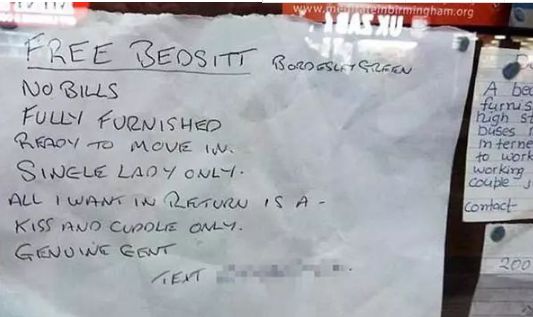 www.metroteinbirmingham.org
FREE BEDSITT BORDESLEY GREEN
NO BILLS
FULLY FURNISHED
READY TO MOVE IN.
SINGLE LADY ONLY.
ALL I WANT IN RETURN IS A -
KISS AND CUDDLE ONLY.
GENUINE GENT
TEXT
A bed
furnis
high st
buses
interne
to work
working
couple
contact
200